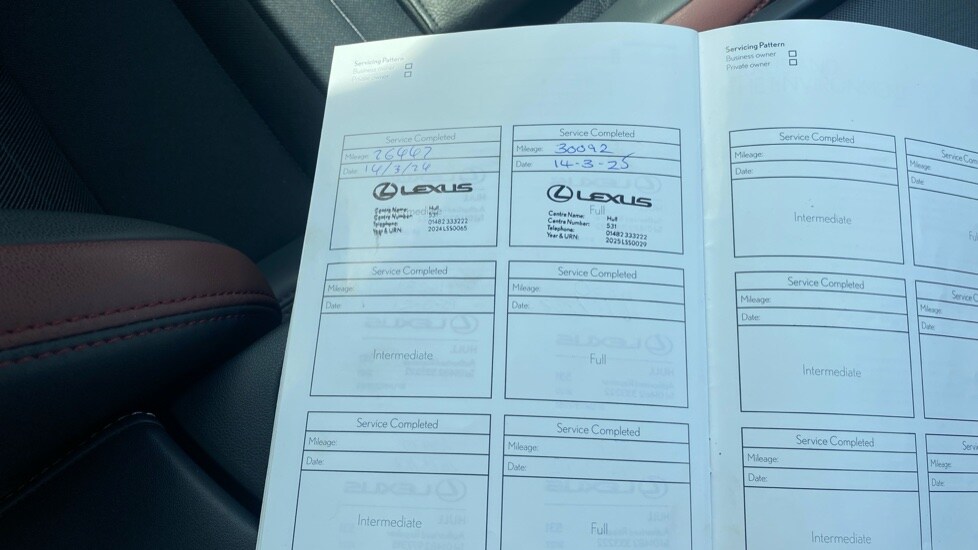 Servicing Pattern
Business owner
Private owner
Service Completed
Mileage: 26447
Date: 14/3/24
LEXUS
Intermediate
Centre Name: Hull
Centre Number: 531
Telephone: 01482 333222
Year & URN: 2024LSS0065
Service Completed
Mileage: 30092
Date: 14-3-25
LEXUS
Full
Centre Name: Hull
Centre Number: 531
Telephone: 01482 333222
Year & URN: 2025LSS0029
Service Completed
Mileage:
Date:
Intermediate
Service Completed
Mileage:
Date:
Full
Service Completed
Mileage:
Date:
Intermediate
Service Completed
Mileage:
Date:
Full
Servicing Pattern
Business owner
Private owner
Service Completed
Mileage:
Date:
Intermediate
Service Com
Mileage:
Date:
Ful
Service Completed
Mileage:
Date:
Intermediate
Service C
Mileage:
Date:
Service Completed
Mileage:
Date:
Intermediate
Serv
Mileage:
Date: